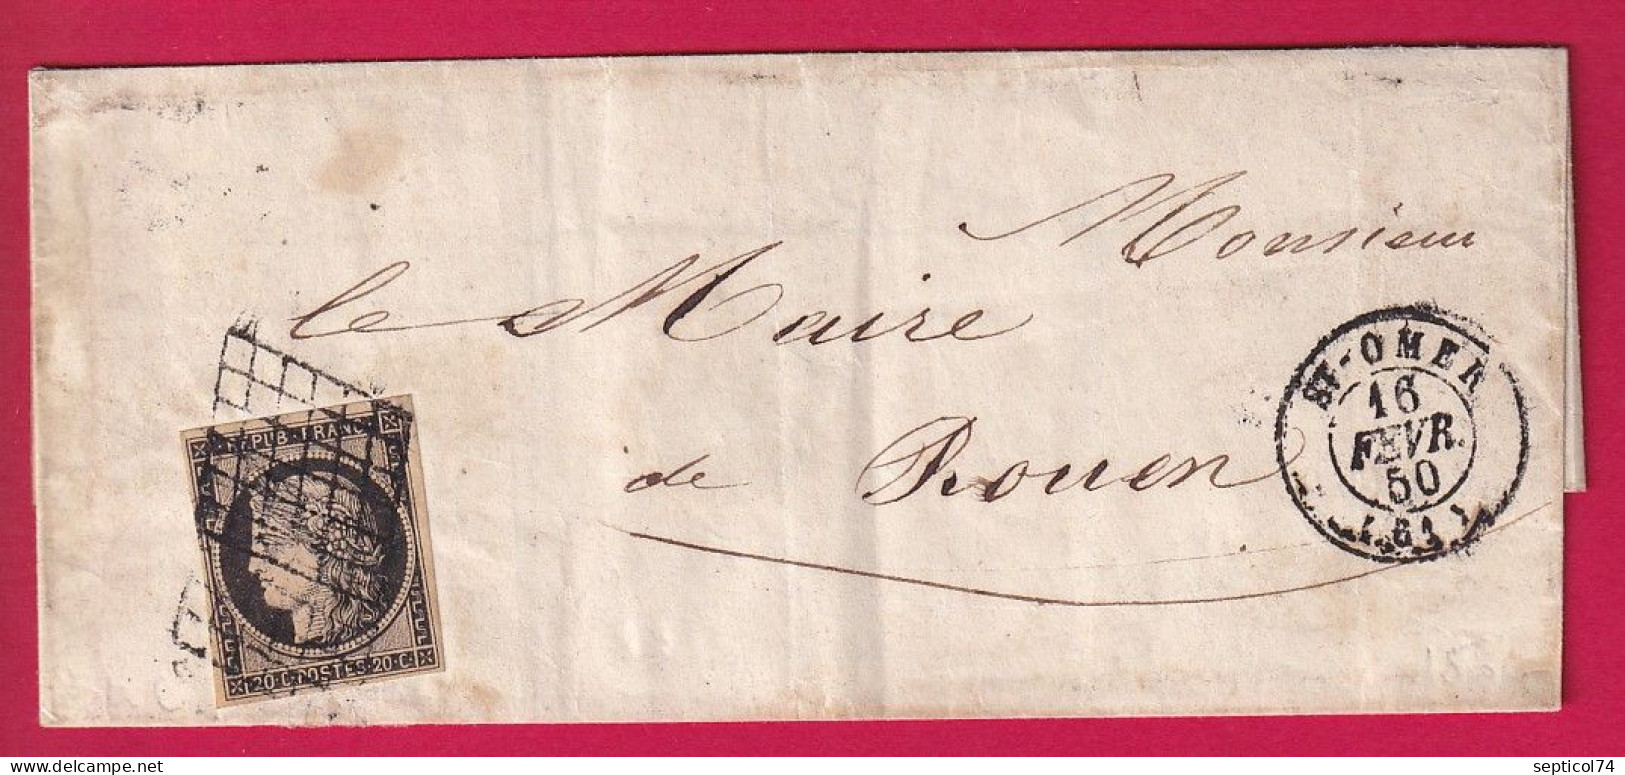 Monsieur
le Maire
de Rouen
ST-OMER
16
FEVR.
50
(61)
REPUB. FRANC.
20·C·POSTES·20·C·
septicol74